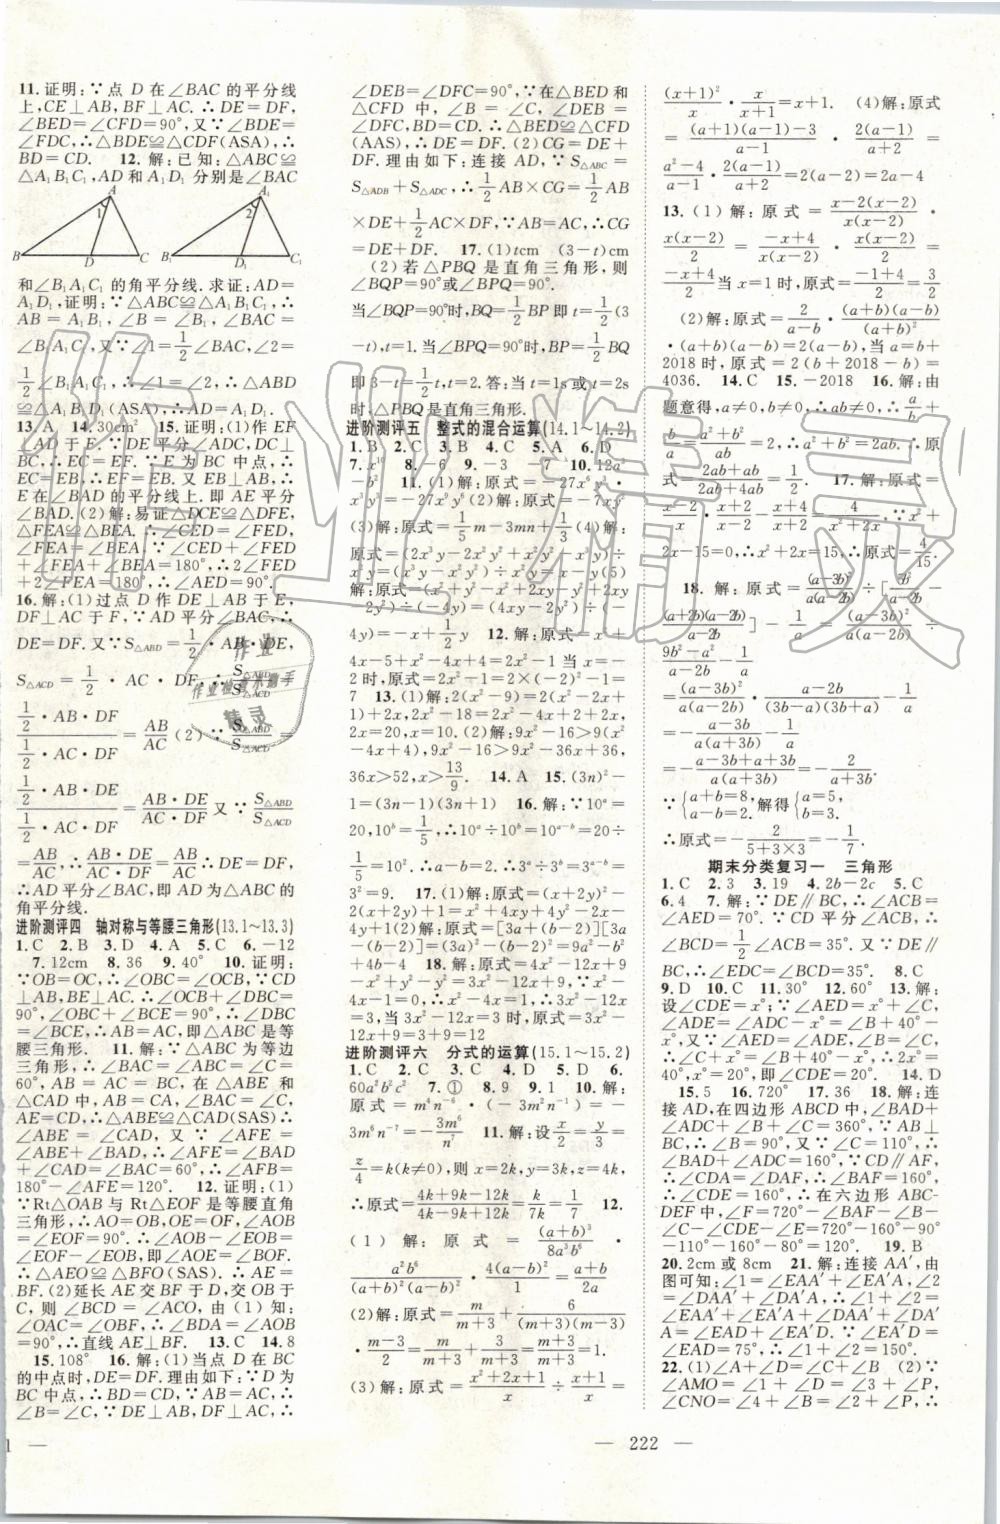 11. 证明:∵点 D 在∠BAC 的平分线
上,CE⊥AB,BF⊥AC. ∴DE=DF,
∠BED=∠CFD=90°,又∵∠BDE=
∠FDC,∴△BDE≌△CDF(ASA),∴
BD=CD. 12. 解:已知:△ABC≌
△A₁B₁C₁,AD 和 A₁D₁ 分别是∠BAC
A 1 B D C A₁ 2 B₁ D₁ C₁
和∠B₁A₁C₁ 的角平分线. 求证:AD=
A₁D₁,证明:∵△ABC≌△A₁B₁C₁,∴
AB = A₁B₁,∠B = ∠B₁,∠BAC =
∠B₁A₁C₁,又∵∠1=1/2∠BAC,∠2=
1/2∠B₁A₁C₁,∴∠1=∠2,∴△ABD
≌△A₁B₁D₁(ASA),∴AD=A₁D₁.
13. A 14. 30cm² 15. 证明:(1)作 EF
⊥AD 于 E. ∵DE 平分∠ADC,DC⊥
BC,∴EC=EF. ∵E 为 BC 中点,∴
EC=EB,∴EF=EB. 又 EB⊥AB,∴
E 在∠BAD 的平分线上. 即 AE 平分
∠BAD. (2)解:易证△DCE≌△DFE,
△FEA≌△BEA ∴∠CED=∠FED,
∠FEA=∠BEA ∵∠CED+∠FED
+∠FEA+∠BEA=180°,∴2∠FED
+2∠FEA=180°,∴∠AED=90°.
16. 解:(1)过点 D 作 DE⊥AB 于 E,
DF⊥AC 于 F,∵AD 平分∠BAC,∴
DE=DF. 又∵S△ABD=1/2·AB·DE,
S△ACD=1/2·AC·DF,∴S△ABD/S△ACD=
(1/2·AB·DF)/(1/2·AC·DF)=AB/AC (2)∵S△ABD/S△ACD=
(1/2·AB·DE)/(1/2·AC·DF)=(AB·DE)/(AC·DF) 又∵S△ABD/S△ACD
=AB/AC,∴(AB·DE)/(AC·DF)=AB/AC ∴DE=DF,
∴AD 平分∠BAC,即 AD 为∠BAC 的
角平分线.
进阶测评四 轴对称与等腰三角形(13.1~13.3)
1. C 2. B 3. D 4. A 5. C 6. -12
7. 12cm 8. 36 9. 40° 10. 证明:
∵OB=OC,∴∠OBC=∠OCB,∵CD
⊥AB,BE⊥AC. ∴∠OCB+∠DBC=
90°,∠OBC+∠BCE=90°,∴∠DBC
=∠BCE,∴AB=AC,即△ABC 是等
腰三角形. 11. 解:∵△ABC 为等边
三角形,∴∠BAC=∠ABC=∠C=
60°,AB = AC,在 △ABE 和
△CAD 中,AB = CA,∠BAC = ∠C,
AE=CD,∴△ABE≌△CAD(SAS)∴
∠ABE = ∠CAD,又 ∵∠AFE =
∠ABE+∠BAD,∴∠AFE=∠BAD
+∠CAD=∠BAC=60°,∴∠AFB=
180°-∠AFE=120°. 12. 证明:(1)
∵Rt△OAB 与 Rt△EOF 是等腰直角
三角形,∴AO=OB,OE=OF,∠AOB
=∠EOF=90°. ∴∠AOB-∠EOB=
∠EOF-∠EOB,即∠AOE=∠BOF.
∴△AEO≌△BFO(SAS). ∴AE=
BF. (2)延长 AE 交 BF 于 D,交 OB 于
C,则∠BCD=∠ACO,由(1)知:
∠OAC=∠OBF,∴∠BDA=∠AOB
=90°,∴直线 AE⊥BF. 13. C 14. 8
15. 108° 16. 解:(1)当点 D 在 BC
的中点时,DE=DF. 理由如下:∵D 为
BC 中点,∴BD=CD. ∵AB=AC,∴
∠B=∠C. ∵DE⊥AB,DF⊥AC,∴
∠DEB=∠DFC=90°,∵在△BED 和
△CFD 中,∠B = ∠C,∠DEB =
∠DFC,BD=CD. ∴△BED≌△CFD
(AAS),∴DE=DF. (2)CG=DE+
DF. 理由如下:连接 AD,∵S△ABC=
S△ADB+S△ADC,∴1/2AB×CG=1/2AB
×DE+1/2AC×DF,∵AB=AC,∴CG
=DE+DF. 17. (1)tcm (3-t)cm
(2)若△PBQ 是直角三角形,则
∠BQP=90°或∠BPQ=90°.
当∠BQP=90°时,BQ=1/2BP 即 t=1/2(3
-t),t=1. 当∠BPQ=90°时,BP=1/2BQ
即 3-t=1/2t,t=2. 答:当 t=1s 或 t=2s
时,△PBQ 是直角三角形.
进阶测评五 整式的混合运算(14.1~14.2)
1. B 2. C 3. B 4. C 5. A 6. D
7. x¹⁰ 8. -6 9. -3 -7 10. 12a³
-b² 11. (1)解:原式=-27x⁶y³·
x³y³=-27x⁹y⁶ (2)解:原式=-7xy²
(3)解:原式=1/5m-3mn+1/3 (4)解:
原式=(2x³y-2x²y²+x²y²-x³y)÷
x²y=(x³y-x²y²)÷x²y=x-y(5)
解:原式=(x²+y²-x²+2xy-y²+2xy
-2y²)÷(-4y)=(4xy-2y²)÷(-
4y)=-x+1/2y 12. 解:原式=x²+
4x-5+x²-4x+4=2x²-1 当 x=
-2时,原式=2x²-1=2×(-2)²-1=
7 13. (1)解:2(x²-9)=2(x²-2x+
1)+2x,2x²-18=2x²-4x+2+2x,
2x=20,x=10. (2)解:9x²-16>9(x²
-4x+4),9x²-16>9x²-36x+36,
36x>52,x>13/9. 14. A 15. (3n)²-
1=(3n-1)(3n+1) 16. 解:∵10ᵃ=
20,10ᵇ=1/5,∴10ᵃ÷10ᵇ=10ᵃ⁻ᵇ=20÷
1/5=10². ∴a-b=2. ∴3ᵃ÷3ᵇ=3ᵃ⁻ᵇ=
3²=9. 17. (1)解:原式=(x+2y)(x+
2y-4)(2)解:原式=[3a+(b-2)][3a
-(b-2)]=(3a)²-(b-2)²=9a²-b²+
4b-4 18. 解:原式=4x²-12x+9
-x²+y²-y²=3x²-12x+9,∵x²-
4x-1=0,∴x²-4x=1,∴3x²-12x
=3,当 3x²-12x=3 时,原式=3x²-
12x+9=3+9=12
进阶测评六 分式的运算(15.1~15.2)
1. C 2. C 3. C 4. D 5. D 6.
60a²b²c² 7. ① 8. 9 9. 1 10. 解:
原式=m⁴n⁻⁶·(-3m²n⁻¹)=-
3m⁶n⁻⁷=-3m⁶/n⁷ 11. 解:设x/2=y/3=
z/4=k(k≠0),则 x=2k,y=3k,z=4k,
∴原式=(4k+9k-12k)/(4k-9k+12k)=k/7k=1/7 12.
(1)解:原式=(a+b)³/8a³b⁶·
a²b⁶/((a+b)²(a-b))·4(a-b)²/1=(a+b)/2a
(2)解:原式=m/(m+3)+6/((m+3)(m-3))
·(m-3)/2=m/(m+3)+3/(m+3)=(m+3)/(m+3)=1.
(3)解:原式=(x²+2x+1)/x÷(x+1)/x=
(x+1)²/x·x/(x+1)=x+1. (4)解:原式
=((a+1)(a-1)-3)/(a-1)·2(a-1)/(a+2)=
(a²-4)/(a-1)·2(a-1)/(a+2)=2(a-2)=2a-4
13. (1)解:原式=(x-2(x-2))/(x(x-2))·
x(x-2)/2=(-x+4)/(x(x-2))·x(x-2)/2=
(-x+4)/2 当 x=1 时,原式=(-1+4)/2=3/2
(2)解:原式=2/(a-b)·(a+b)(a-b)/(a+b)²
·(a+b)(a-b)=2(a-b),当 a=b+
2018 时,原式=2(b+2018-b)=
4036. 14. C 15. -2018 16. 解:由
题意得,a≠0,b≠0,∴ab≠0,∴a/b+
b/a=(a²+b²)/ab=2,∴a²+b²=2ab. ∴原
式=(2ab+ab)/(2ab+4ab)=1/2. 17. 解:原式
=(x+5)/x-(x+4)/(x+2)=4/(x²+2x). ∵x²+
2x-15=0,∴x²+2x=15,∴原式=4/15.
18. 解:原式=(a-3b)²/(a(a-2b))÷[9b²/(a-2b)-
(a+2b)(a-2b)/(a-2b)]=(a-3b)²/(a(a-2b))÷
(9b²-a²)/(a-2b)-1/a
=(a-3b)²/(a(a-2b))·(a-2b)/((3b-a)(3b+a))-1/a
=-(a-3b)/(a(a+3b))-1/a
=-(a-3b+a+3b)/(a(a+3b))=-2/(a+3b).
∵{a+b=8, a-b=2. 解得{a=5, b=3.
∴原式=-2/(5+3×3)=-1/7.
期末分类复习一 三角形
1. C 2. 3 3. 19 4. 2b-2c 5. C
6. 4 7. 解:∵DE∥BC,∴∠ACB=
∠AED=70°. ∵CD 平分∠ACB,∴
∠BCD=1/2∠ACB=35°. 又∵DE∥
BC,∴∠EDC=∠BCD=35°. 8. C
9. D 10. C 11. 30° 12. 60° 13. 解:
设∠CDE=x°;∵∠AED=x°+∠C,
∠ADE=∠ADC-x°=∠B+40°-
x°,又∵∠AED=∠ADE,∠B=∠C,
∴∠C+x°=∠B+40°-x°,∴x°=
20°,即∠CDE=x°=20°. 14. D
15. 5 16. 720° 17. 36 18. 解:连
接 AD,在四边形 ABCD 中,∠BAD+
∠ADC+∠B+∠C=360°,∵AB⊥
BC,∴∠B=90°,又∵∠C=110°,∴
∠BAD+∠ADC=160°,∵CD∥AF,
∴∠CDA=∠DAF,∴∠BAF=160°,
∴∠CDE=160°,∴在六边形 ABC-
DEF 中,∠F=720°-∠BAF-∠B-
∠C-∠CDE-∠E=720°-160°-90°
-110°-160°-90°=110°. 19. B
20. 2cm 或 8cm 21. 解:连接 AA′,由
图可知:∠1=∠EAA′+∠EA′A,∠2
=∠DAA′+∠DA′A,∴∠1+∠2=
∠EAA′+∠EA′A+∠DAA′+∠DA′
A=∠EAD+∠EA′D. ∵∠EA′D=
∠EAD=75°,∴∠1+∠2=150°.
22. (1)∠A+∠D=∠C+∠B (2)∵
∠AMO=∠1+∠D=∠3+∠P,
∠CNO=∠4+∠B=∠2+∠P,∴
1 —
— 222 —
作业精灵
作业
作业检查小助手
精灵